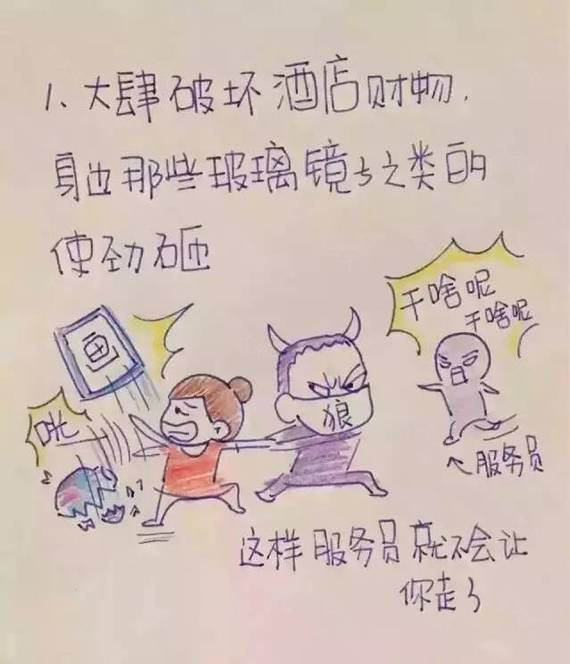 1、大肆破坏酒店财物,
身边那些玻璃镜子之类的
使劲砸
干啥呢
干啥呢
画
狼
咣
服务员
这样服务员就不会让
你走了